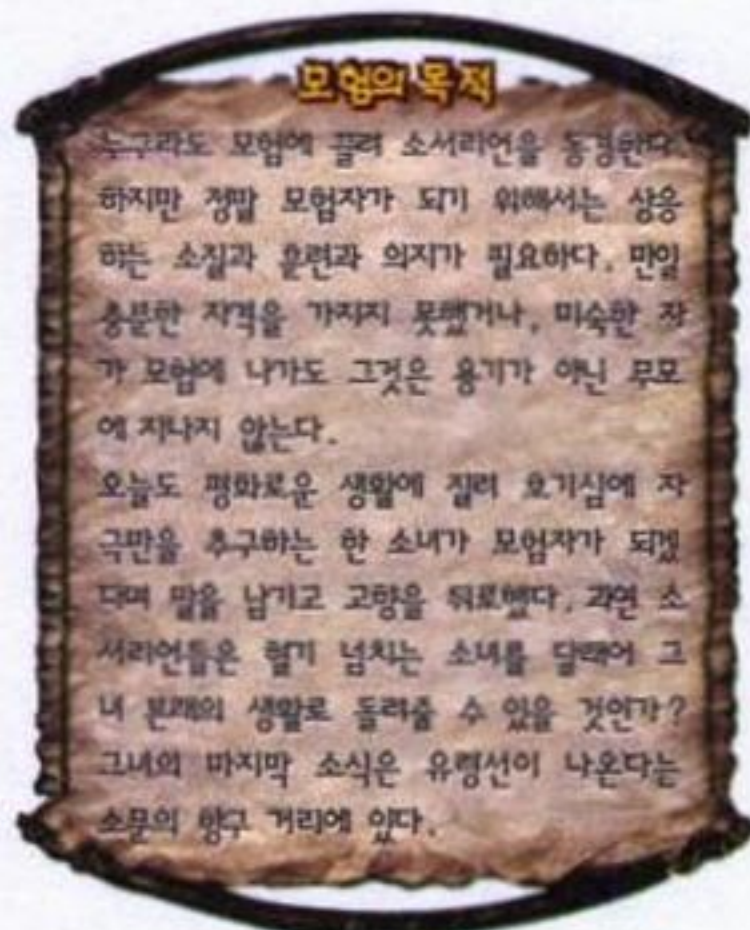 모험의 목적
누구라도 모험에 끌려 소서리언을 동경한다.
하지만 정말 모험자가 되기 위해서는 상응
하는 소질과 훈련과 의지가 필요하다. 만일
충분한 자격을 가지지 못했거나, 미숙한 자
가 모험에 나가도 그것은 용기가 아닌 무모
에 지나지 않는다.
오늘도 평화로운 생활에 질려 호기심에 자
극만을 추구하는 한 소녀가 모험자가 되겠
다며 말을 남기고 고향을 뒤로했다. 과연 소
서리언들은 혈기 넘치는 소녀를 달래어 그
녀 본래의 생활로 돌려줄 수 있을 것인가?
그녀의 마지막 소식은 유령선이 나온다는
소문의 항구 거리에 있다.